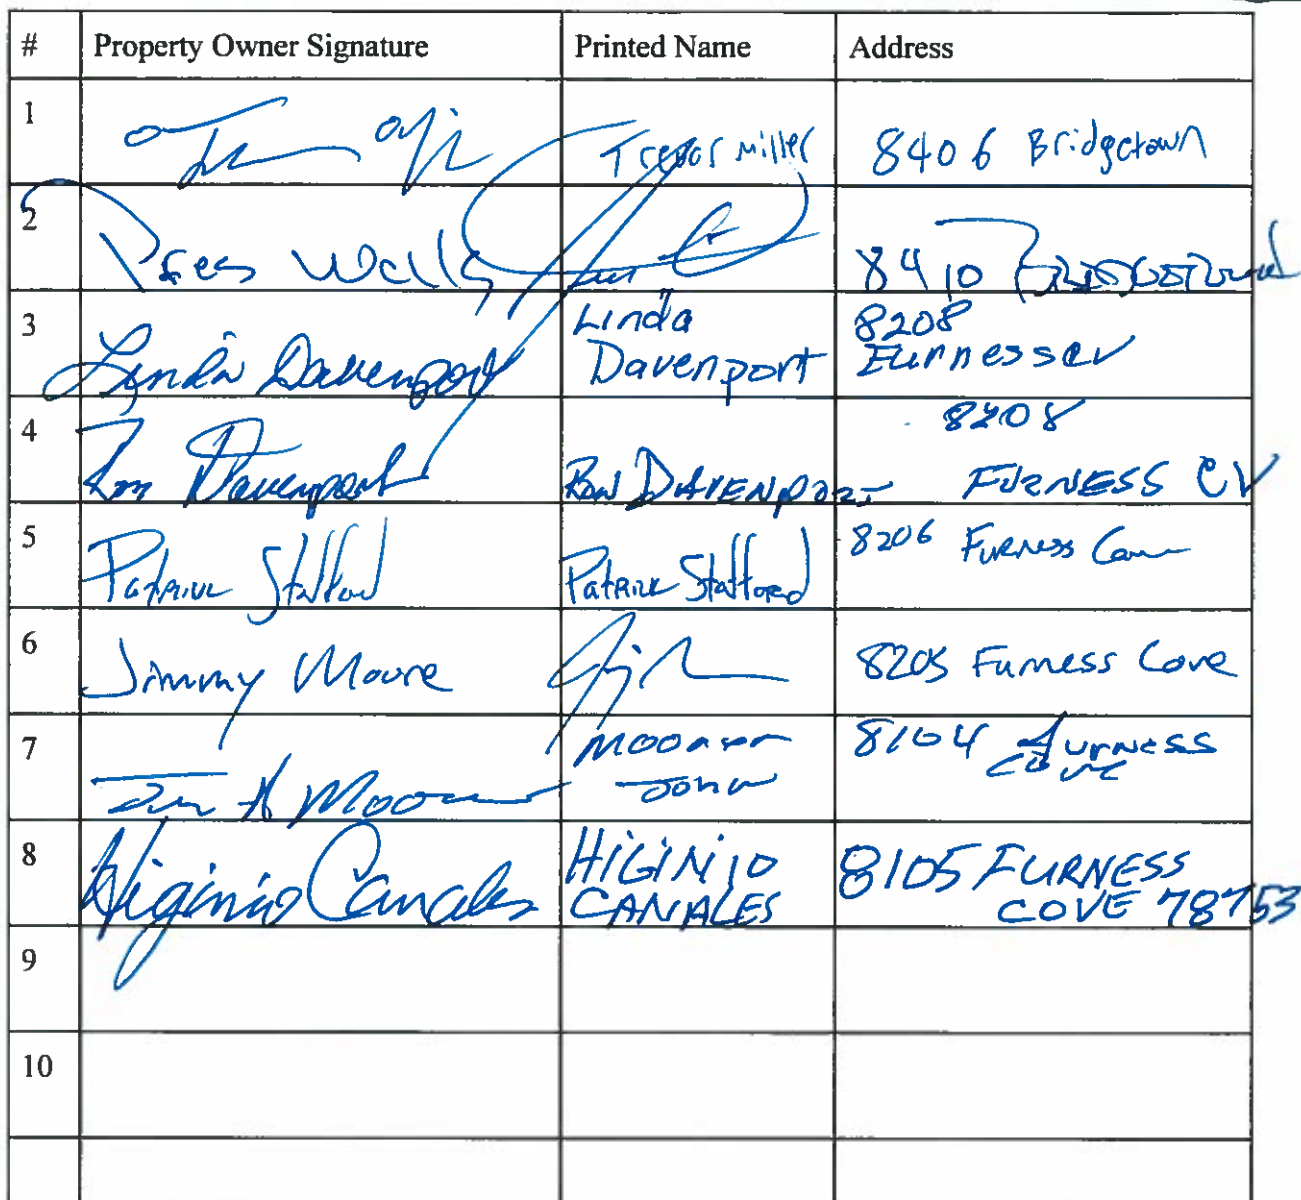 # Property Owner Signature Printed Name Address
1 Trevor Miller 8406 Bridgetown
2 Walls 8410
3 Linda Davenport Linda Davenport 8208 Furness CV
4 Ron Davenport Ron DAVENPORT 8208 FURNESS CV
5 Patrick Stafford Patrick Stafford 8206 Furness Cove
6 Jimmy Moore 8205 Furness Cove
7 John 8104 Furness Cove
8 Higinio Canales HIGINIO CANALES 8105 FURNESS COVE 78753
9
10